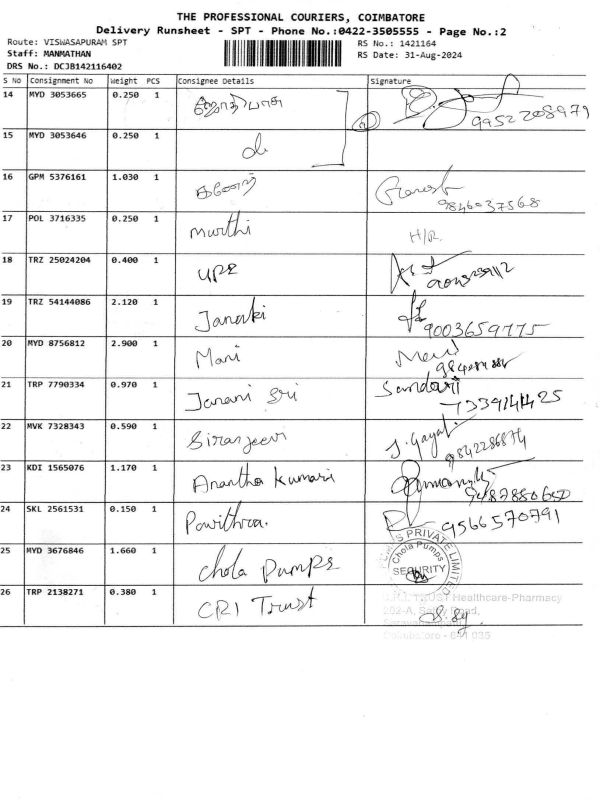 THE PROFESSIONAL COURIERS, COIMBATORE
Delivery Runsheet - SPT - Phone No.:0422-3505555 - Page No.:2
Route: VISWASAPURAM SPT RS No.: 1421164
Staff: MANMATHAN RS Date: 31-Aug-2024
DRS No.: DCJB142116402
S No Consignment No Weight PCS Consignee Details Signature
14 MYD 3053665 0.250 1 9952208979
15 MYD 3053646 0.250 1 do
16 GPM 5376161 1.030 1 கணேஷ் Ganesh 9846037568
17 POL 3716335 0.250 1 Murthi H/R.
18 TRZ 25024204 0.400 1 UPS
19 TRZ 54144086 2.120 1 Janaki 9003659775
20 MYD 8756812 2.900 1 Mani Mani
21 TRP 7790334 0.970 1 Janani Sri Sundari 7339141425
22 MVK 7328343 0.590 1 Siranjeevi J. Gayat 9842286874
23 KDI 1565076 1.170 1 Anantha Kumari 9487880650
24 SKL 2561531 0.150 1 Pavithra. 9566570791
25 MYD 3676846 1.660 1 Chola Pumps PUMPS PRIVATE LIMITED Chola Pumps SECURITY
26 TRP 2138271 0.380 1 CRI Trust TRUST Healthcare-Pharmacy
202-A, Road,
Coimbatore - 641 035